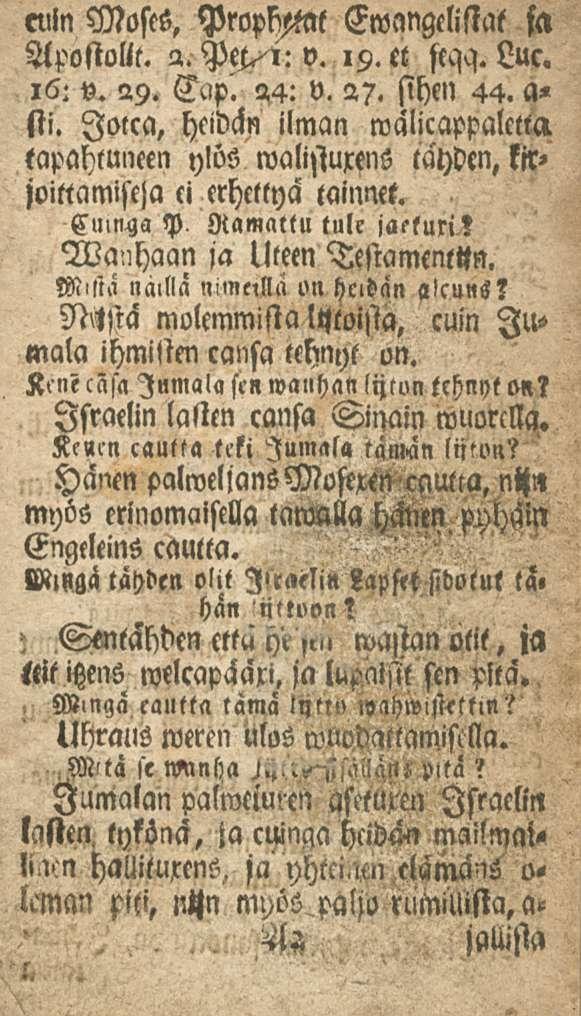 cuin Moses, Prophetat Ewangelistat ja
Apostolit. 2. Pet. 1: v. 19. et seqq. Luc.
16: v. 29. Cap. 24: v. 27. sihen 44. a-
sti. Jotca, heidän ilman wälicappaletta
tapahtuneen ylös walistuxens tähden, kir-
joittamisesa ei erhettyä tainnet.
Cuinga P. Ramattu tule jaeturi?
Wanhaan ja Uteen Testamentijn.
Mistä näillä nimeillä on heidän alcuns?
Nijstä molemmista lijtoista, cuin Ju-
mala ihmisten cansa tehnyt on.
Kenē cāsa Jumala sen wanhan lijton tehnyt on?
Israelin lasten cansa Sinain wuorella.
Kenen cautta teki Jumala tämän lijton?
Hänen palweljans Mosexen cautta, nijn
myös erinomaisella tawalla hänen pyhäin
Engeleins cautta.
Mingä tähden olit Israelin Lapset sidotut tä-
hän lijttoon?
Sentähden että he sen wastan otit, ja
teit itzens welcapääxi, ja lupaisit sen pitä.
Mingä cautta tämä lijtto wahwistettin?
Uhraus weren ulos wuodattamisella.
Mitä se wanha lijtto sisälläns pitä?
Jumalan palweluxen asetuxen Israelin
lasten tykönä, ja cuinga heidän mailmal-
linen hallituxens, ja yhteinen elämäns o-
leman piti, nijn myös paljo rumillista, a-
A2 jallista